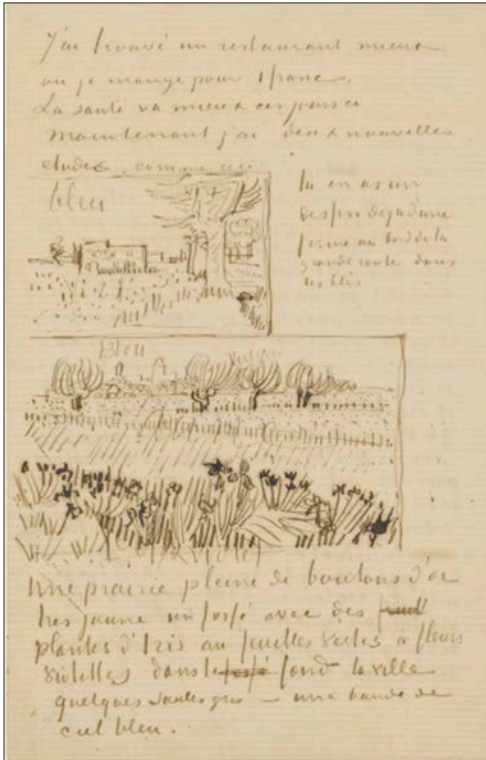 J'ai trouvé un restaurant mieux
ou je mange pour 1 franc.
La santé va mieux ces jours ci
Maintenant j'ai deux nouvelles
etudes comme ceci
bleu
tu en as un
dessin deja d'une
ferme au bord de la
grande route dans
les blés
Bleu
violet
Une prairie pleine de boutons d'or
tres jaune un fossé avec des
plantes d'Iris aux feuilles vertes à fleurs
violettes dans le fond la ville
quelques saules gris – une bande de
ciel bleu.